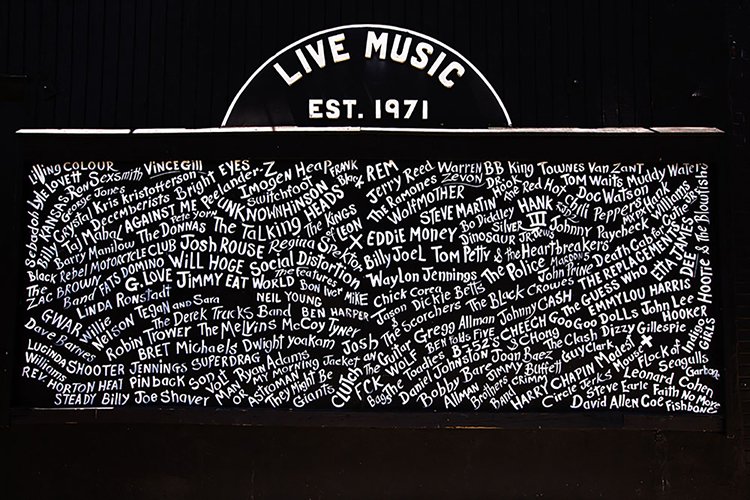 LIVE MUSIC
EST. 1971
Living COLOUR VINCE GILL EYES REM Jerry Reed WARREN ZEVON BB King Townes Van Zandt Tom Waits Muddy Waters
Lyle Lovett Ron Sexsmith Bright Imogen Heap FRANK Black
KANSAS George Jones Kris Kristofferson Switchfoot The Ramones Dr. Hook The Red Hot Chili Peppers Doc Watson
Crystal Decemberists UNKNOWN HINSON WOLFMOTHER STEVE MARTIN HANK III Hank Williams
Taj Mahal AGAINST ME Pete Yorn The Talking HEADS The KINGS of LEON EDDIE MONEY Bo Diddley Silver Johnny Paycheck
Sebadoh Billy Barry Manilow The DONNAS Regina Spektor Dinosaur JR. Death Cab for Cutie
Black Rebel MOTORCYCLE CLUB Josh ROUSE Billy Joel Tom Petty & the Heartbreakers THE REPLACEMENTS ETTA JAMES
The ZAC BROWN Band FATS DOMINO WILL HOGE Social Distortion Waylon Jennings The Police John Prine The GUESS WHO Hootie & the Blowfish
G. LOVE JIMMY EAT WORLD The features Bon Iver MIKE Chick Corea Dickie Betts The Black Crowes EMMYLOU HARRIS
LINDA Ronstadt NEIL YOUNG Jason & The Scorchers Johnny CASH Goo Goo DOLLS John Lee HOOKER
GWAR Willie Nelson Tegan and Sara The Derek Trucks Band BEN HARPER Gregg Allman CHEECH & Chong Dizzy Gillespie Indigo GIRLS
Dave Barnes Robin Trower The Melvins McCoy Tyner Josh BEN Folds FIVE B-52's The Clash
LUCINDA Williams BRET Michaels Dwight Yoakam The Guitar WOLF Joan Baez Guy Clark Modest Mouse Flock of Seagulls
SHOOTER JENNINGS SUPERDRAG Ryan Adams MY MORNING Jacket CLUTCH Daniel Johnston Jimmy Buffett HARRY CHAPIN Leonard Cohen
REV. HORTON HEAT PINBACK Son Volt MAN OR ASTROMAN They Might Be Giants FCK The Toadies Bobby Bare Circle Jerks Steve Earle Faith No More
STEADY Billy Joe Shaver Allman Brothers Band David Allen Coe Fishbone